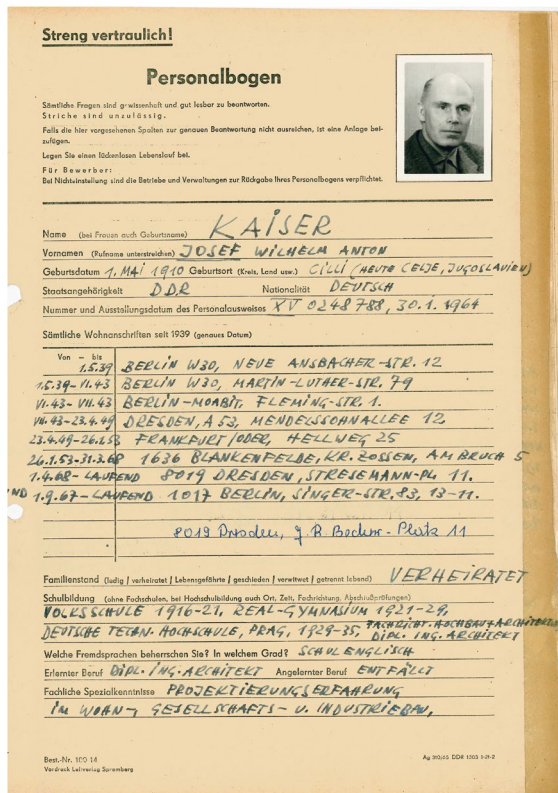 Streng vertraulich!
Personalbogen
Sämtliche Fragen sind gewissenhaft und gut lesbar zu beantworten.
Striche sind unzulässig.
Falls die hier vorgesehenen Spalten zur genauen Beantwortung nicht ausreichen, ist eine Anlage bei-
zufügen.
Legen Sie einen lückenlosen Lebenslauf bei.
Für Bewerber:
Bei Nichteinstellung sind die Betriebe und Verwaltungen zur Rückgabe Ihres Personalbogens verpflichtet.
Name (bei Frauen auch Geburtsname) KAISER
Vornamen (Rufname unterstreichen) JOSEF WILHELM ANTON
Geburtsdatum 1. MAI 1910 Geburtsort (Kreis, Land usw.) CILLI (HEUTE CELJE, JUGOSLAVIEN)
Staatsangehörigkeit DDR Nationalität DEUTSCH
Nummer und Ausstellungsdatum des Personalausweises XV 0248788, 30.1.1964
Sämtliche Wohnanschriften seit 1939 (genaues Datum)
Von – bis
1.5.39 BERLIN W30, NEUE ANSBACHER-STR. 12
1.5.39-VI.43 BERLIN W30, MARTIN-LUTHER-STR. 79
VI.43-VII.43 BERLIN-MOABIT, FLEMING-STR. 1.
VII.43-23.4.49 DRESDEN, A 53, MENDELSSOHNALLEE 12,
23.4.49-26.1.53 FRANKFURT/ODER, HELLWEG 25
26.1.53-31.3.68 1636 BLANKENFELDE, KR. ZOSSEN, AM BRUCH 5
1.4.68-LAUFEND 8019 DRESDEN, STRESEMANN-PL 11.
ND 1.9.67-LAUFEND 1017 BERLIN, SINGER-STR. 83, 13-11.
8019 Dresden, J. R. Becher-Platz 11
Familienstand (ledig / verheiratet / Lebensgefährte / geschieden / verwitwet / getrennt lebend) VERHEIRATET
Schulbildung (ohne Fachschulen, bei Hochschulbildung auch Ort, Zeit, Fachrichtung, Abschlußprüfungen)
VOLKSSCHULE 1916-21, REAL-GYMNASIUM 1921-29,
DEUTSCHE TECHN. HOCHSCHULE, PRAG, 1929-35, FACHRICHT. HOCHBAU + ARCHITEKTUR
DIPL. ING. ARCHITEKT
Welche Fremdsprachen beherrschen Sie? In welchem Grad? SCHULENGLISCH
Erlernter Beruf DIPL. ING. ARCHITEKT Angelernter Beruf ENTFÄLLT
Fachliche Spezialkenntnisse PROJEKTIERUNGSERFAHRUNG
IM WOHN-, GESELLSCHAFTS- U. INDUSTRIEBAU,
Best.-Nr. 100 14
Vordruck Leitverlag Spremberg